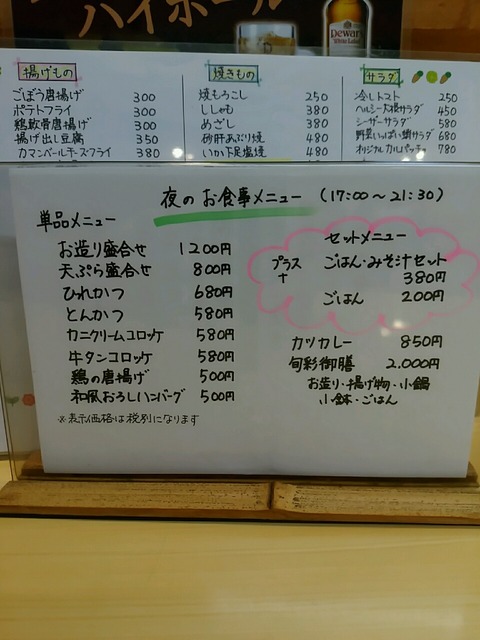 ハイボール
Dewar's
White Label
揚げもの
ごぼう唐揚げ 300
ポテトフライ 300
鶏軟骨唐揚げ 380
揚げ出し豆腐 350
カマンベールチーズフライ 380
焼きもの
焼もろこし 250
ししゃも 380
めざし 380
砂肝あぶり焼 480
いか下足塩焼 480
サラダ
冷しトマト 250
ヘルシー大根サラダ 450
シーザーサラダ 580
野菜いっぱい鯛サラダ 680
オリジナルカルパッチョ 780
夜のお食事メニュー (17:00〜21:30)
単品メニュー
お造り盛合せ 1200円
天ぷら盛合せ 800円
ひれかつ 680円
とんかつ 580円
カニクリームコロッケ 580円
牛タンコロッケ 580円
鶏の唐揚げ 500円
和風おろしハンバーグ 500円
※表示価格は税別になります
セットメニュー
プラス ごはん・みそ汁セット
+ 380円
ごはん 200円
カツカレー 850円
旬彩御膳 2.000円
お造り・揚げ物・小鍋
小鉢・ごはん